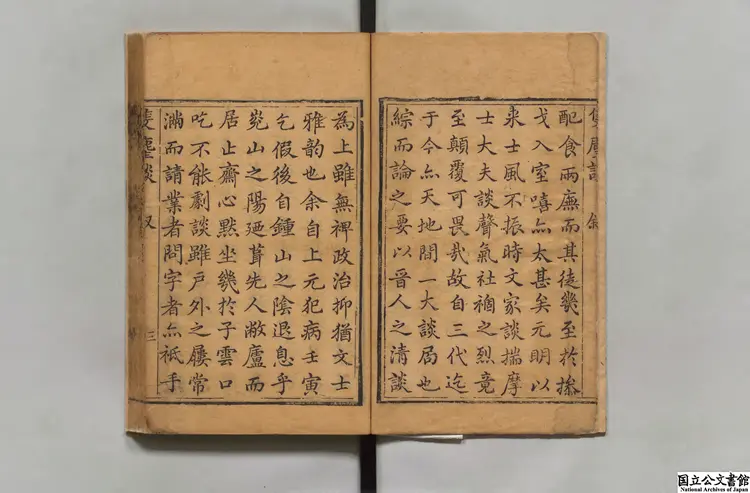 配食兩廡而其徒幾至於操
戈入室嘻亦太甚矣元明以
來士風不振時文家談揣摩
士大夫談聲氣社禍之烈竟
至顛覆可畏哉故自三代迄
于今亦天地間一大談局也
綜而論之要以晉人之清談
為上雖無裨政治抑猶文士
雅韵也余自上元犯病壬寅
乞假後自鍾山之陰退息乎
堯山之陽廼葺先人敝廬而
居止齋心默坐幾於子雲口
吃不能劇談雖戶外之屨常
滿而請業者問字者亦祗手
雙塵談 叙 三
国立公文書館
National Archives of Japan